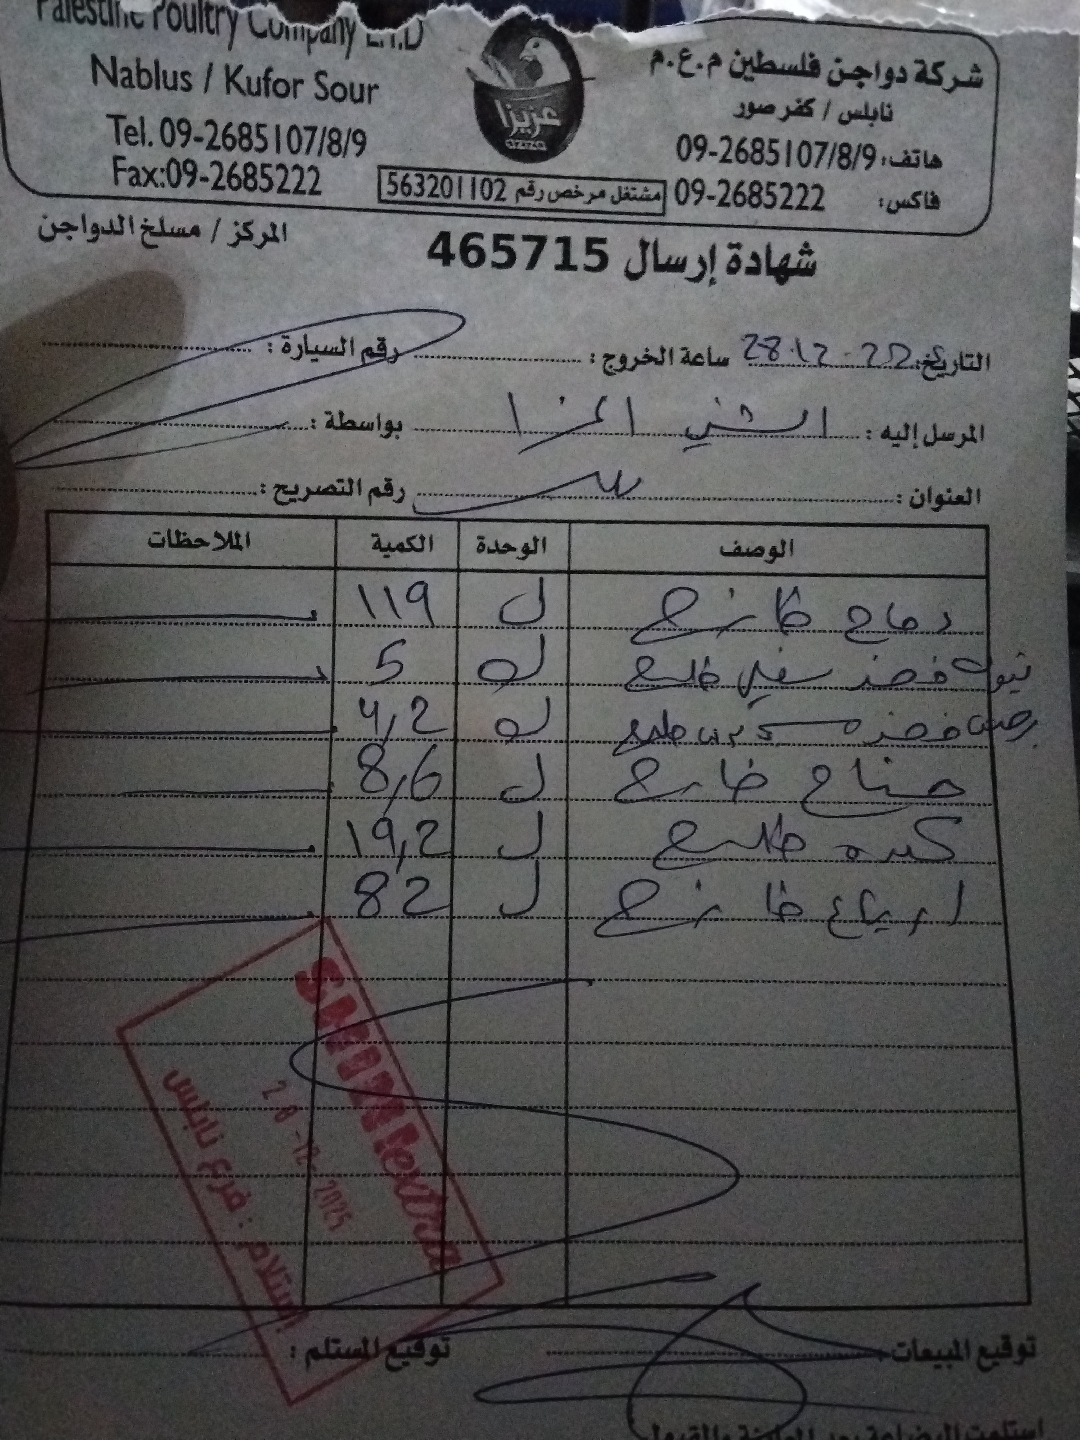 Palestine Poultry Company LTD
Nablus / Kufor Sour
Tel. 09-2685107/8/9
Fax:09-2685222
عزيزا
azıza
شركة دواجن فلسطين م.ع.م
نابلس / كفر صور
هاتف: 09-2685107/8/9
فاكس: 09-2685222
مشتغل مرخص رقم 563201102
شهادة إرسال 465715
المركز / مسلخ الدواجن
التاريخ: 28.12.202 ساعة الخروج: رقم السيارة:
المرسل إليه: الشني بواسطة:
العنوان: رقم التصريح:
الوصف الوحدة الكمية الملاحظات
دجاج طازج ك 119
فخذ سفلي طازج ك 5
فخذ طازج ك 4,2
جناح طازج ك 8,6
كبده طازج ك 19,2
ارباع طازج ك 82
SHINI extra
28-12-2025
إستلام: فرع نابلس
توقيع المبيعات توقيع المستلم:
استلمت البضاعة بعد المعاينة والقبول